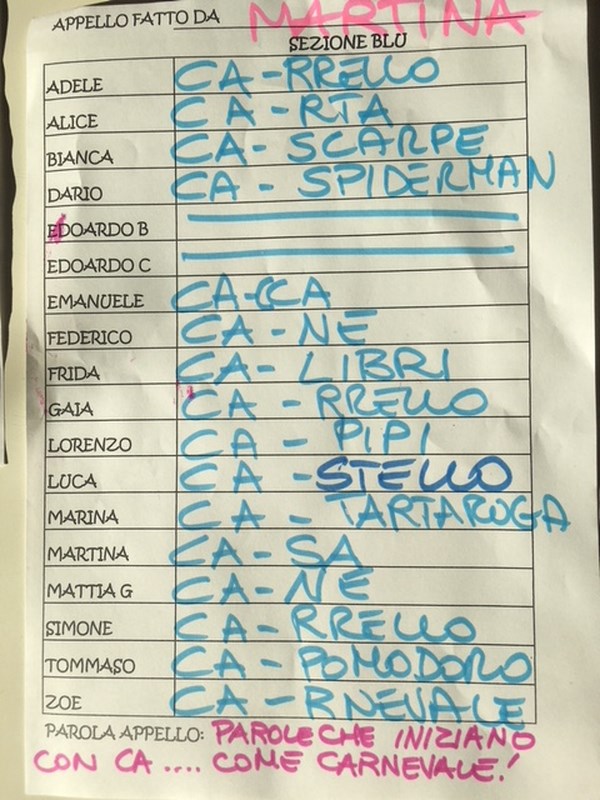 APPELLO FATTO DA MARTINA
SEZIONE BLU
ADELE CA-RRELLO
ALICE CA-RTA
BIANCA CA-SCARPE
DARIO CA-SPIDERMAN
EDOARDO B
EDOARDO C
EMANUELE CA-CCA
FEDERICO CA-NE
FRIDA CA-LIBRI
GAIA CA-RRELLO
LORENZO CA-PIPI
LUCA CA-STELLO
MARINA CA-TARTARUGA
MARTINA CA-SA
MATTIA G CA-NE
SIMONE CA-RRELLO
TOMMASO CA-POMODORO
ZOE CA-RNEVALE
PAROLA APPELLO: PAROLE CHE INIZIANO
CON CA .... COME CARNEVALE!